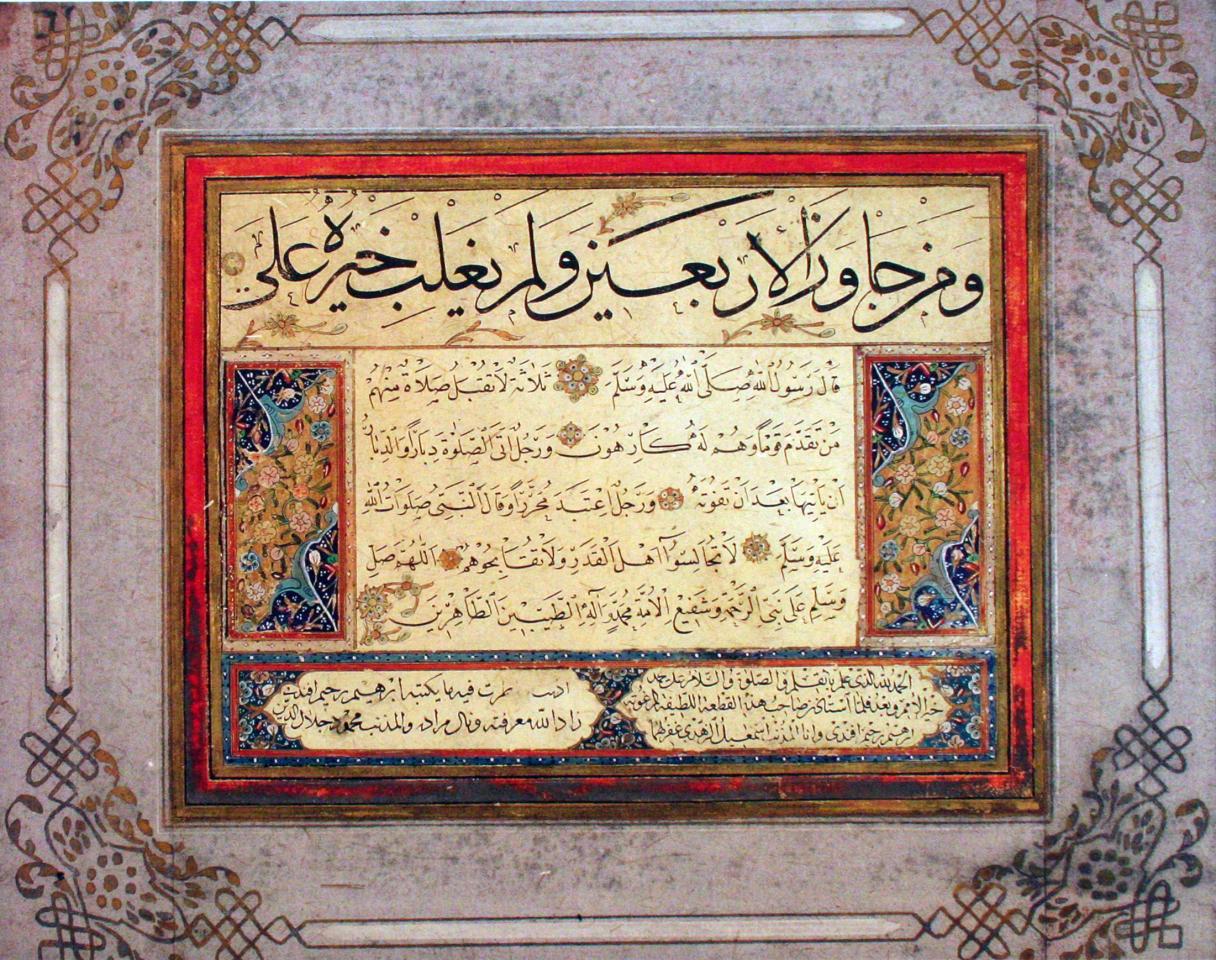 ومن جاوز الأربعين ولم يغلب خيره على
قَالَ رَسُولُ اللهِ صَلَّى اللهُ عَلَيْهِ وَسَلَّمَ ثَلَاثَةٌ لَا تُقْبَلُ صَلَاةٌ مِنْهُمْ
مَنْ تَقَدَّمَ قَوْمًا وَهُمْ لَهُ كَارِهُونَ وَرَجُلٌ أَتَى الصَّلٰوةَ دِبَارًا وَالدِّبَارُ
أَنْ يَأْتِيَهَا بَعْدَ أَنْ تَفُوتَهُ وَرَجُلٌ اعْتَبَدَ مُحَرَّرًا وَقَالَ النَّبِيُّ صَلَوَاتُ اللهِ
عَلَيْهِ وَسَلَّمَ لَا تُجَالِسُوا أَهْلَ الْقَدَرِ وَلَا تُفَاتِحُوهُمْ اَللّٰهُمَّ صَلِّ
وَسَلِّمْ عَلَى نَبِيِّ الرَّحْمَةِ وَشَفِيعِ الْأُمَّةِ مُحَمَّدٍ وَآلِهِ الطَّيِّبِينَ الطَّاهِرِينَ
الحمد لله الذي علم بالقلم والصلوة والسلام على محمد
خير الأمم وبعد صاحب هذا القطعة اللطيفة المرغوبة
رحيم افندي وانا المذنب اسمعيل الزهدي غفر لهما
اذنت فيها بكتبه ابرهيم رحيم افندي
زاد الله معرفته ونال مراده والمذنب محمود جلال الدين